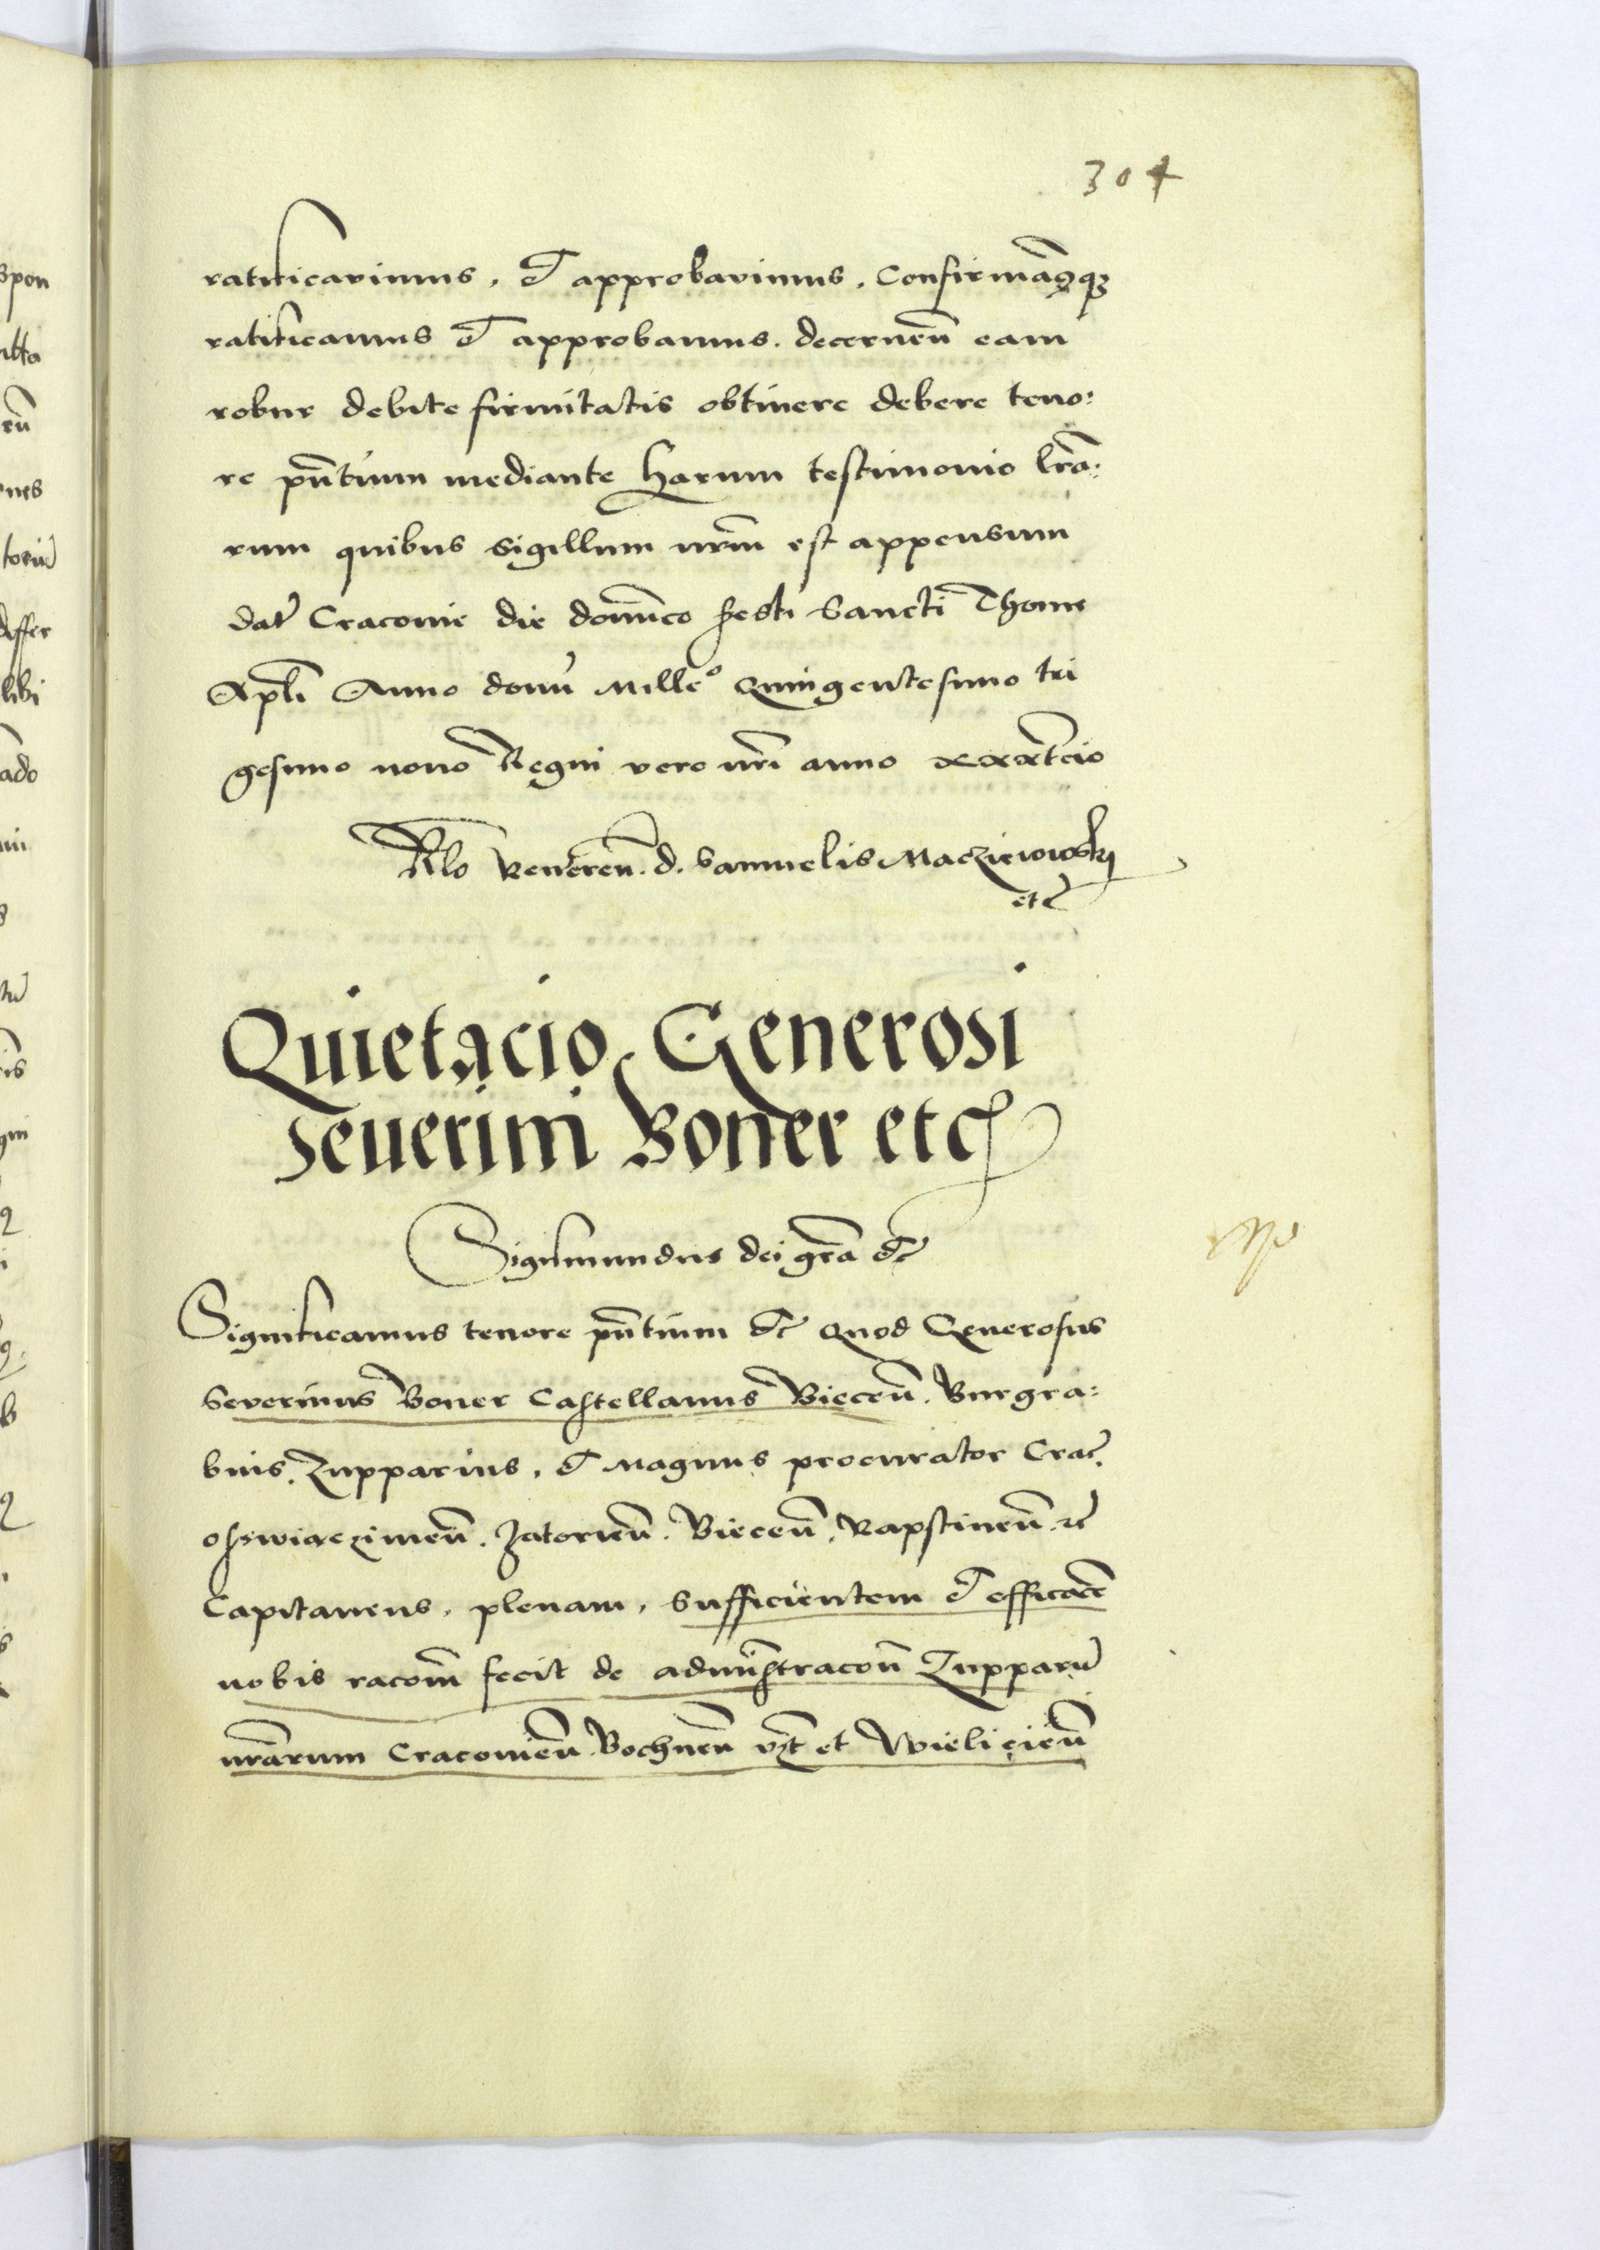 304
ratificavimus, et approbavimus. Confirmamusque
ratificamus et approbamus. decernen̄ eam
robur debite firmitatis obtinere debere teno:
re pn̄tium mediante harum testimonio lrā:
rum quibus Sigillum nrm̄ est appensum
dat Cracovie die dominico festi Sancti Thome
Apli Anno domi Mille° Quingentesimo tri
gesimo nono Regni vero nri anno xxxtercio
Rlo Reveren̄. d. Samuelis Maczieiowsky
etc
Quietacio Generosi
Severini Boner etc
Sigismundus dei grā etc
Significamus tenore pn̄tium etc Quod Generosus
Severinus Boner Castellanus Biecen̄. Burgra:
bius, Zupparius, et Magnus procurator Crac̄.
Osswiaczimen̄. Zatorien̄. Biecen̄. Rapstinen̄ etc
Capitaneus, plenam, sufficientem et efficacē
nobis racom̄ fecit de administracon̄ Zupparū
nrārum Cracovien̄. Bochnen̄ vz̄t et Wieliczien̄